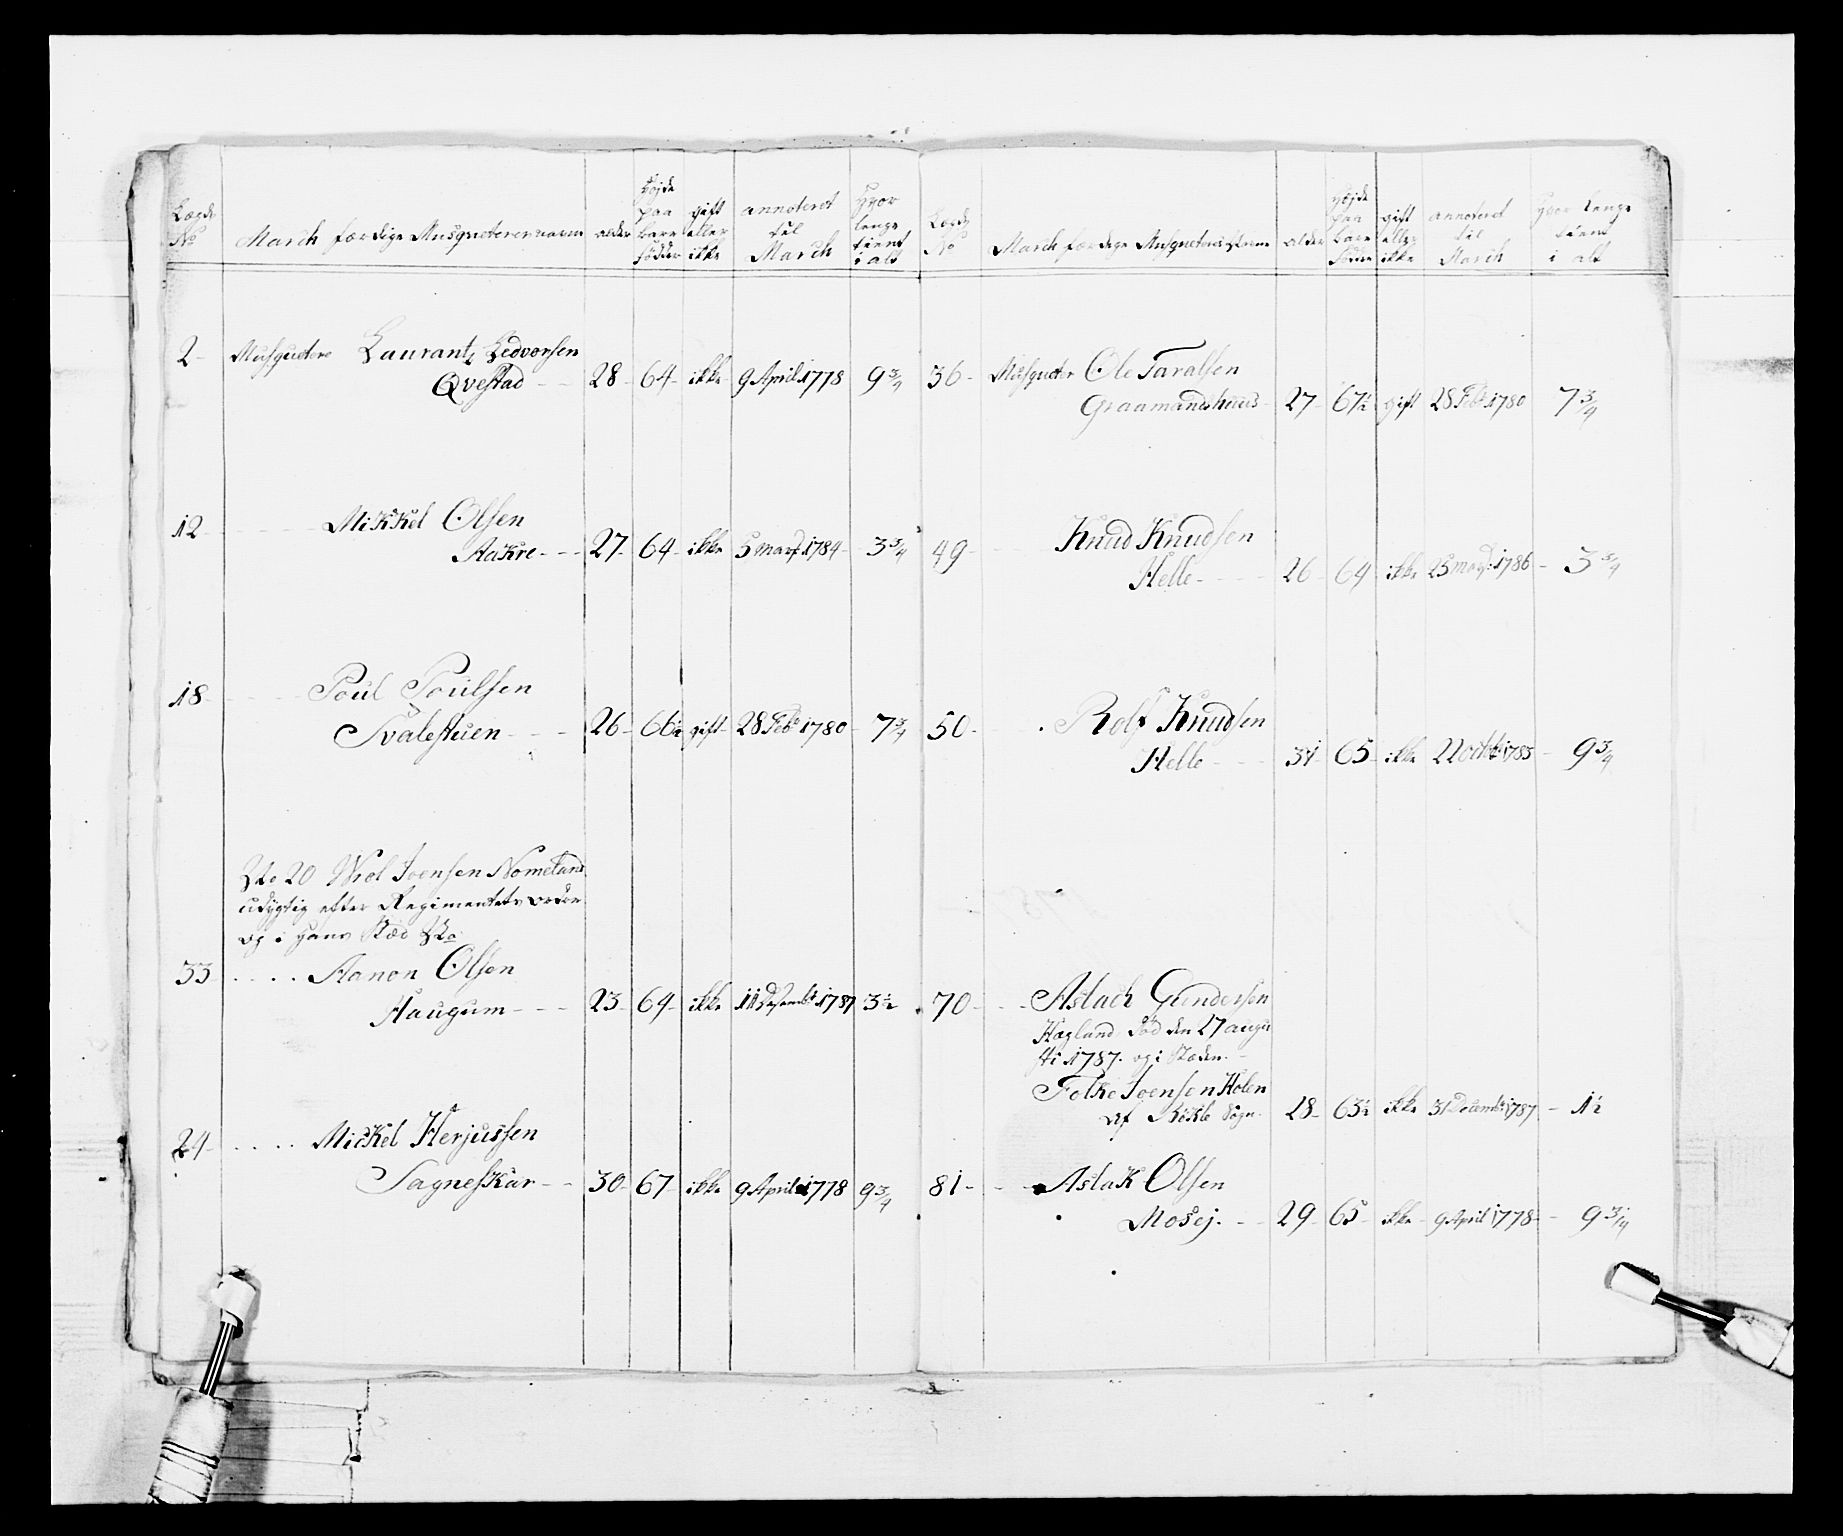 Lægds No
March færdige Musqueterer navne
alder
Højde paa bare födder
gift eller ikke
annoteret til March
Hvor lenge tient i alt
2 - Musquetere Laurantz Sedvorsen
Qvestad - - 28 - 64 - ikke 9 April 1778 9 3/4
12 - - - Mikkel Olsen
Aakre - - - 27 - 64 - ikke 5 Marti 1784 - 3 3/4
18 - - - Poul Poulsen
Svalestuen - - - 26 - 66 1/2 gift - 28 Feb 1780 - 7 3/4
No 20 Niel Joensen Nomeland
udygtig efter Regimentets ordre
og i hans stæd No
33 . . . . Aanon Olsen
Haugum - - - 23 - 64 - ikke 11 Desembr 1787 3 1/2
24 - . . . . Mickel Herjussen
Sagneskar - - 30 - 67 - ikke 9 April 1778 9 3/4
Lægds No
March færdige Musqueteris Navne
alder
Højde paa bare Födder
gift eller ikke
annoteret til March
Hvor lenge tient i alt
36 - Musqueter Ole Taralsen
Graamandshuus - 27 - 67 1/2 gift 28 Feb 1780 7 3/4
49 - - - Knud Knudsen
Helle - - - - 26 - 64 - ikke 23 1786 - 3 3/4
50 - - - Rolf Knudsen
Helle - - - 31 - 65 - ikke 22 octob 1783 - 9 3/4
70 - - - Aslach Gundersen
Hægland Död den 27 augu
sti 1787. og i stæden. -
Folke Joensen Holen
af Bökle Sogn. 28 - 63 1/2 ikke 31 Decembr 1787 - 1 1/2
81 - - - Aslak Olsen
Mosej. - - 29 - 65 - ikke - 9 April 1778 - 9 3/4